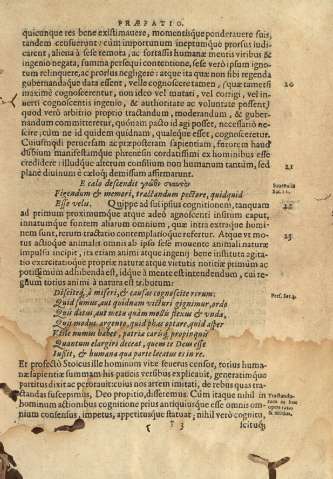 PRÆFATIO.
quicunque res bene existimauere, momentisque ponderauere suis,
tandem censuerunt: cùm importunum ineptumque prorsus iudi-
carent, aliena à sese remota, ac fortassis humanæ mentis viribus &
ingenio negata, summa persequi contentione, sese verò ipsum ignor-
tum relinquere, ac prorsus negligere: atque ita quæ non sibi regenda
gubernandaque data essent, velle cognoscere tamen, (quæ tametsi
maximè cognoscerentur, non ideo vel mutari, vel corrigi, vel in-
uerti cognoscentis ingenio, & authoritate ac voluntate possent)
quod verò arbitrio proprio tractandum, moderandum, & guber-
nandum committeretur, quónam pacto id agi posset, necessariò ne-
scire; cùm ne id quidem quidnam, qualeque esset, cognosceretur.
Cuiusmodi peruersam ac præposteram sapientiam, furorem haud
dubium manifestamque phrenesin cordatissimi ex hominibus esse
credidere: illudque alterum consilium non humanum tantùm, sed
planè diuinum è cæloque demissum affirmarunt.
E cælo descendit γνῶθι σεαυτὸν
Figendum & memori, tractandum pectore, quidquid
Esse velis. Quippe ad sui ipsius cognitionem, tanquam
ad primum proximumque atque adeò agnoscenti insitum caput,
innatumque fontem aliarum omnium, quæ intra extraque homi-
nem sunt, rerum tractatio contemplatioque refertur. Atque vt mo-
tus actioque animalis omnis ab ipso sese mouente animali naturæ
impulsu incipit, ita etiam animi atque ingenij bene instituta agita-
tio exercitatioque propriæ naturæ atque virtutis notitiæ primùm ac
potissimùm adhibenda est, idque à mente est intendendum, cui re-
gnum totius animi à natura est tributum.
Discite, ô miseri, & causas cognoscite rerum:
Quid sumus, aut quidnam victuri gignimur, ordo
Quis datus, aut metæ quàm mollis flexus & vnda,
Quis modus argento, quid fas optare, quid asper
Vtile nummus habet, patriæ carisque propinquis
Quantum elargiri deceat, quem te Deus esse
Iussit, & humana qua parte locatus es in re.
Et profectò Stoicus ille hominum vitæ seuerus censor, totius huma-
næ sapientiæ summam his paucis versibus explicuit, generatimque
partitus dixit ac
tandas suscepimus, Deo propitio, disseremus. Cùm itaque nihil in
hominum actionibus cognitione prius antiquiusque esse omnis om-
nium consensus, impetus, appetitusque statuat, nihil verò cognitu,
T 3 scituque
20
21
22
23
Pers. Sat. 3.